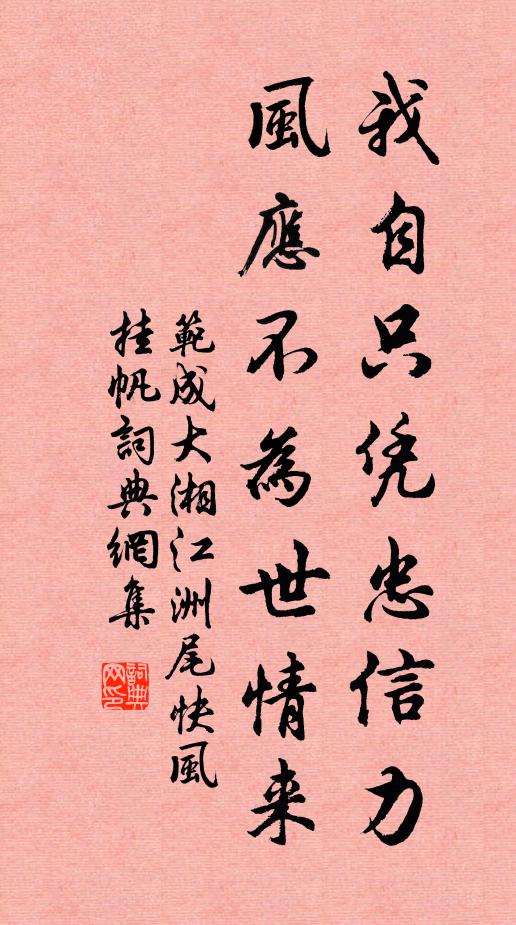 我自只凭忠信力
風應不為世情来
範成大湘江洲尾快風
挂帆詞典網集
詞典网印